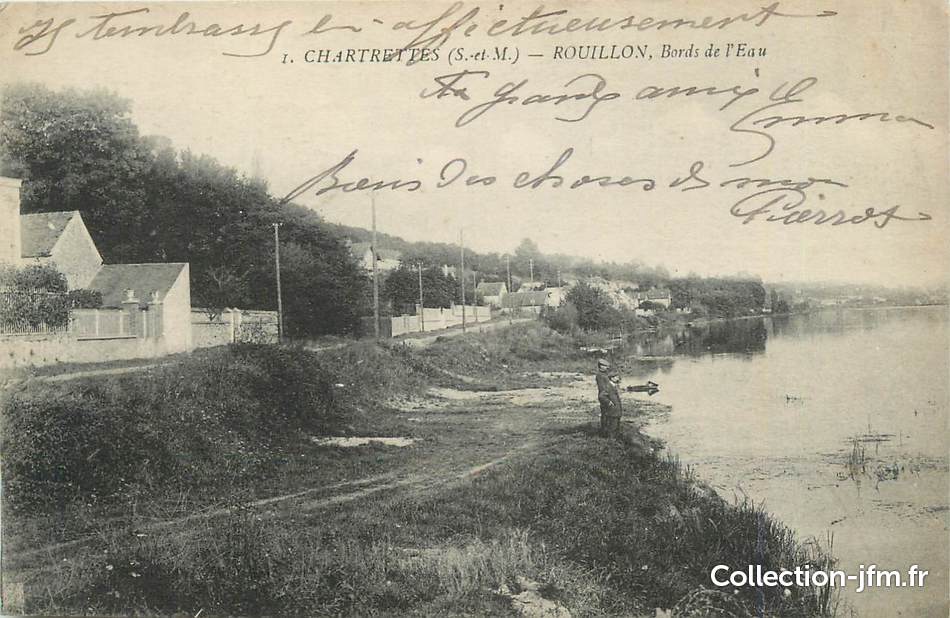 Je t'embrasse bien affectueusement
1. CHARTRETTES (S.-et-M.) — ROUILLON, Bords de l'Eau
Ta grande amie
Emma
Bien des choses de mon
Pierrot
Collection-jfm.fr